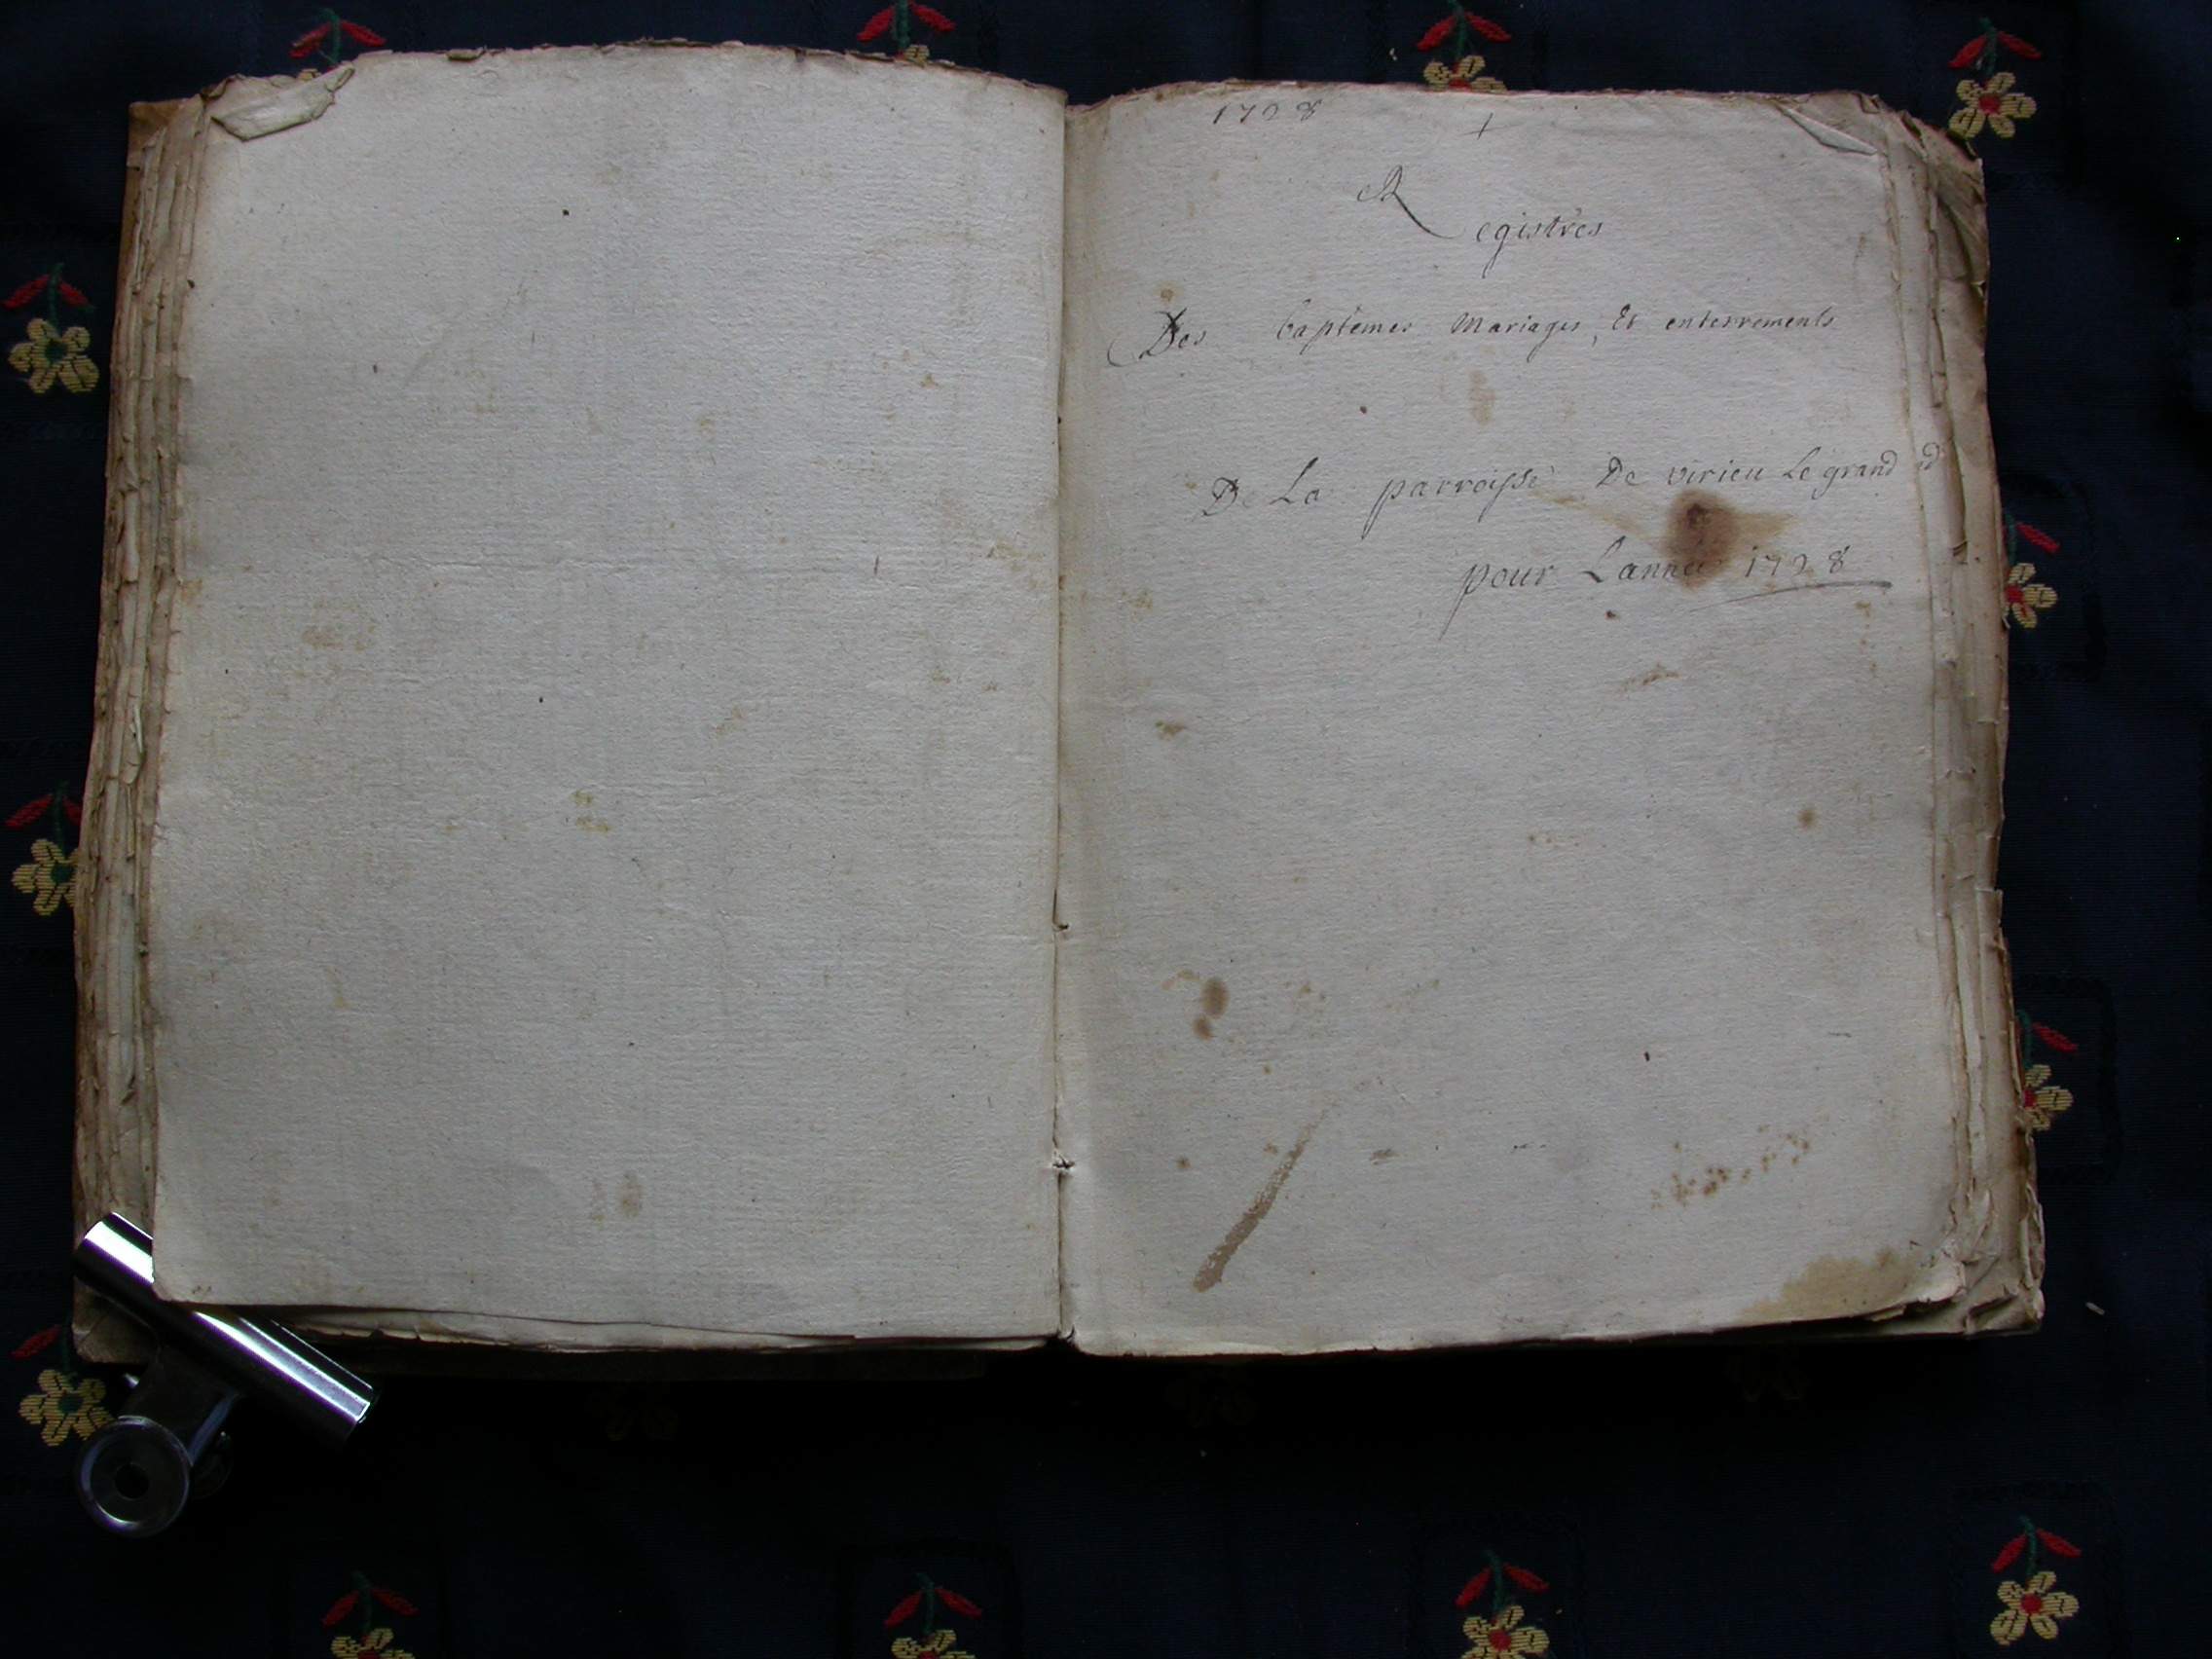 1728
+
Registres
Des baptemes Mariages, Et enterrements
De La parroisse De virieu Le grand
pour Lannee 1728